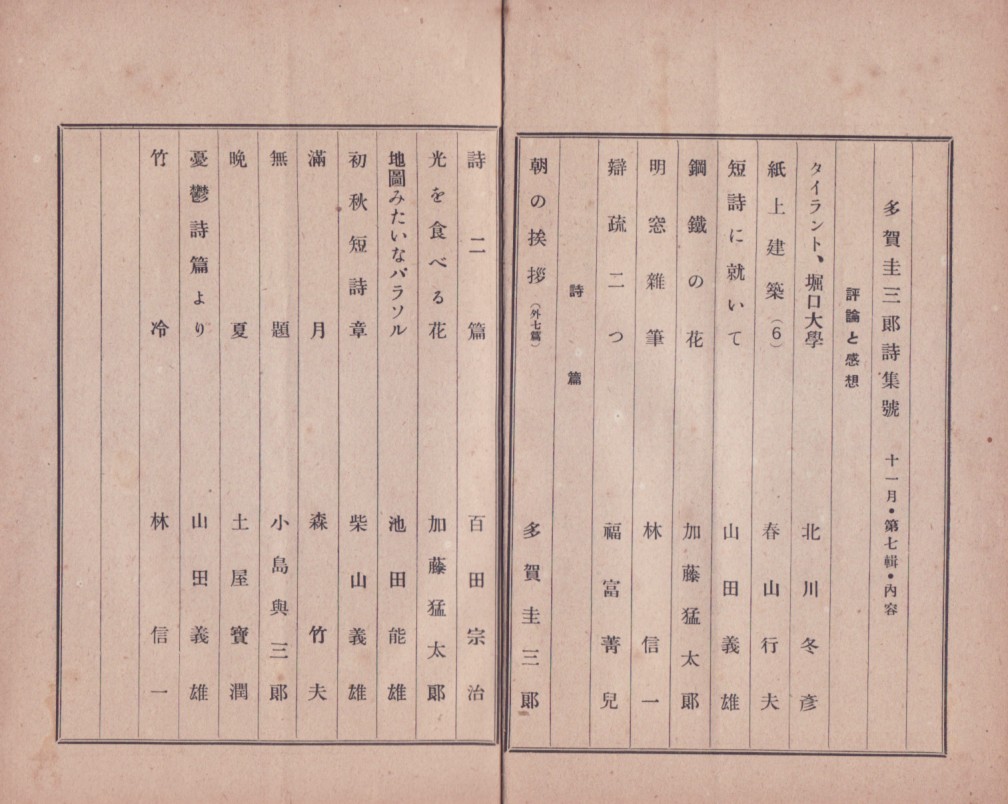 多賀圭三郎詩集號 十一月・第七輯・內容
評論と感想
タイラント、堀口大學 北川冬彥
紙上建築（6） 春山行夫
短詩に就いて 山田義雄
鋼鐵の花 加藤猛太郎
明窓雜筆 林信一
辯疏二つ 福富菁兒
詩篇
朝の挨拶（外七篇） 多賀圭三郎
詩二篇 百田宗治
光を食べる花 加藤猛太郎
地圖みたいなパラソル 池田能雄
初秋短詩章 柴山義雄
滿月 森竹夫
無題 小島與三郎
晚夏 土屋寶潤
憂鬱詩篇より 山田義雄
竹冷 林信一